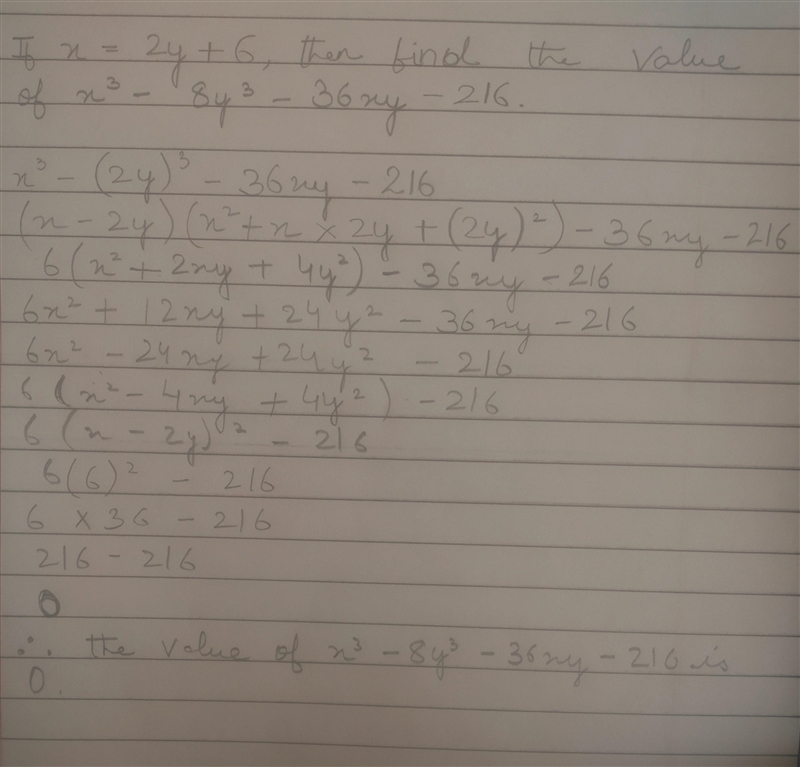 If x = 2y + 6, then find the value
of x³ - 8y³ - 36xy - 216.
x³ - (2y)³ - 36xy - 216
(x - 2y) (x² + x × 2y + (2y)²) - 36xy - 216
6(x² + 2xy + 4y²) - 36xy - 216
6x² + 12xy + 24y² - 36xy - 216
6x² - 24xy + 24y² - 216
6 (x² - 4xy + 4y²) - 216
6 (x - 2y)² - 216
6(6)² - 216
6 × 36 - 216
216 - 216
0
∴ the value of x³ - 8y³ - 36xy - 216 is
0.